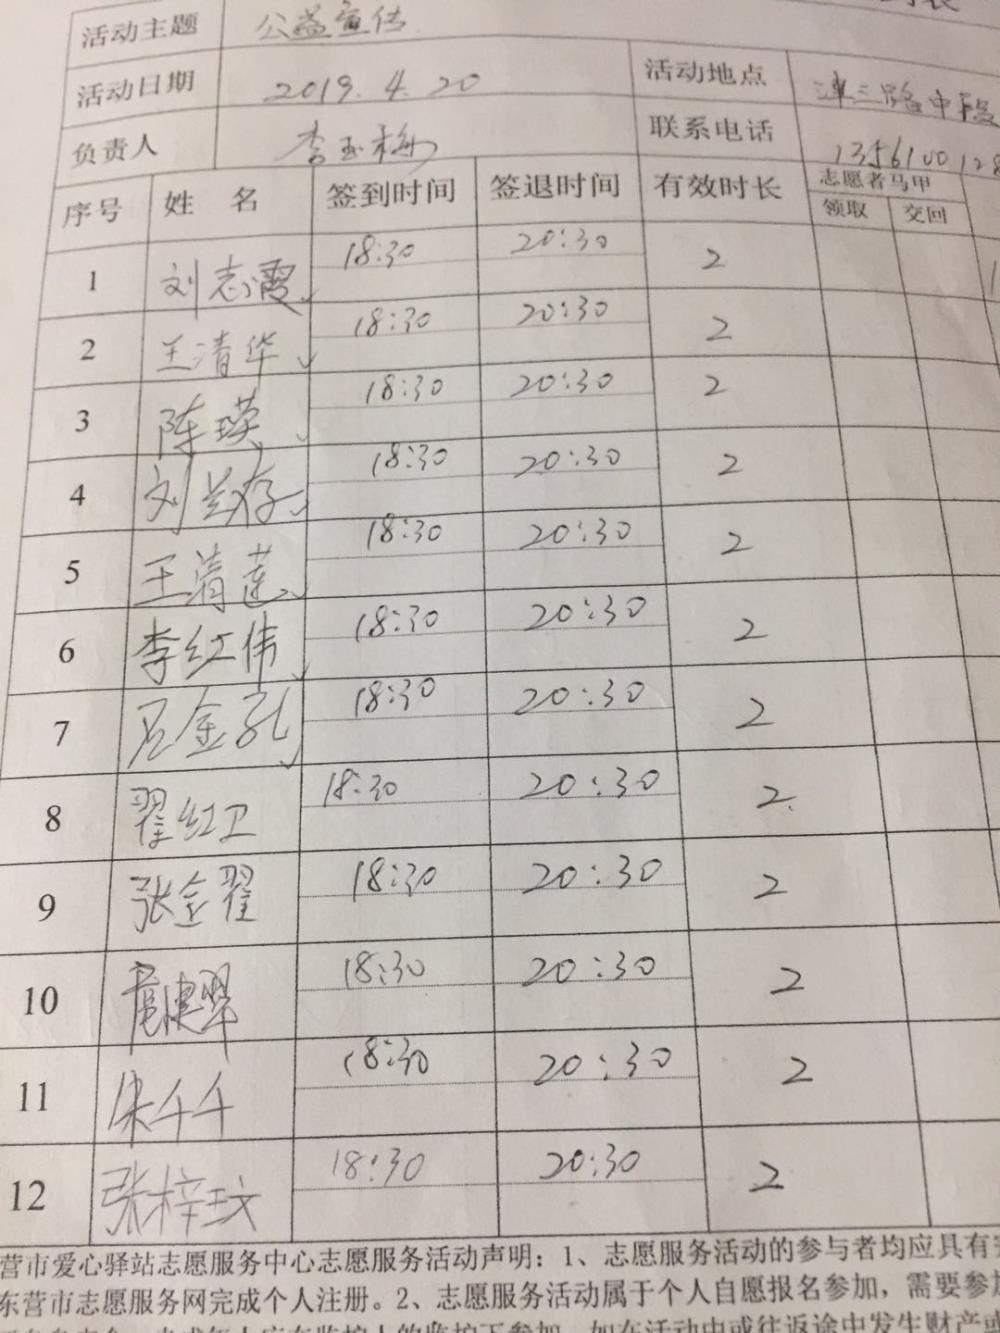 活动主题 公益宣传
活动日期 2019.4.20 活动地点 中段
负责人 李玉梅 联系电话 1356100128
序号 姓 名 签到时间 签退时间 有效时长 志愿者马甲
领取 交回
1 刘志霞 18:30 20:30 2
2 王清华 18:30 20:30 2
3 陈瑛 18:30 20:30 2
4 刘兰存 18:30 20:30 2
5 王清莲 18:30 20:30 2
6 李红伟 18:30 20:30 2
7 吕金孔 18:30 20:30 2
8 翟红卫 18:30 20:30 2
9 张金翟 18:30 20:30 2
10 18:30 20:30 2
11 朱千千 18:30 20:30 2
12 张梓玟 18:30 20:30 2
营市爱心驿站志愿服务中心志愿服务活动声明：1、志愿服务活动的参与者均应具有
东营市志愿服务网完成个人注册。2、志愿服务活动属于个人自愿报名参加，需要参加
的监护下参加，如在活动中或往返途中发生财产或